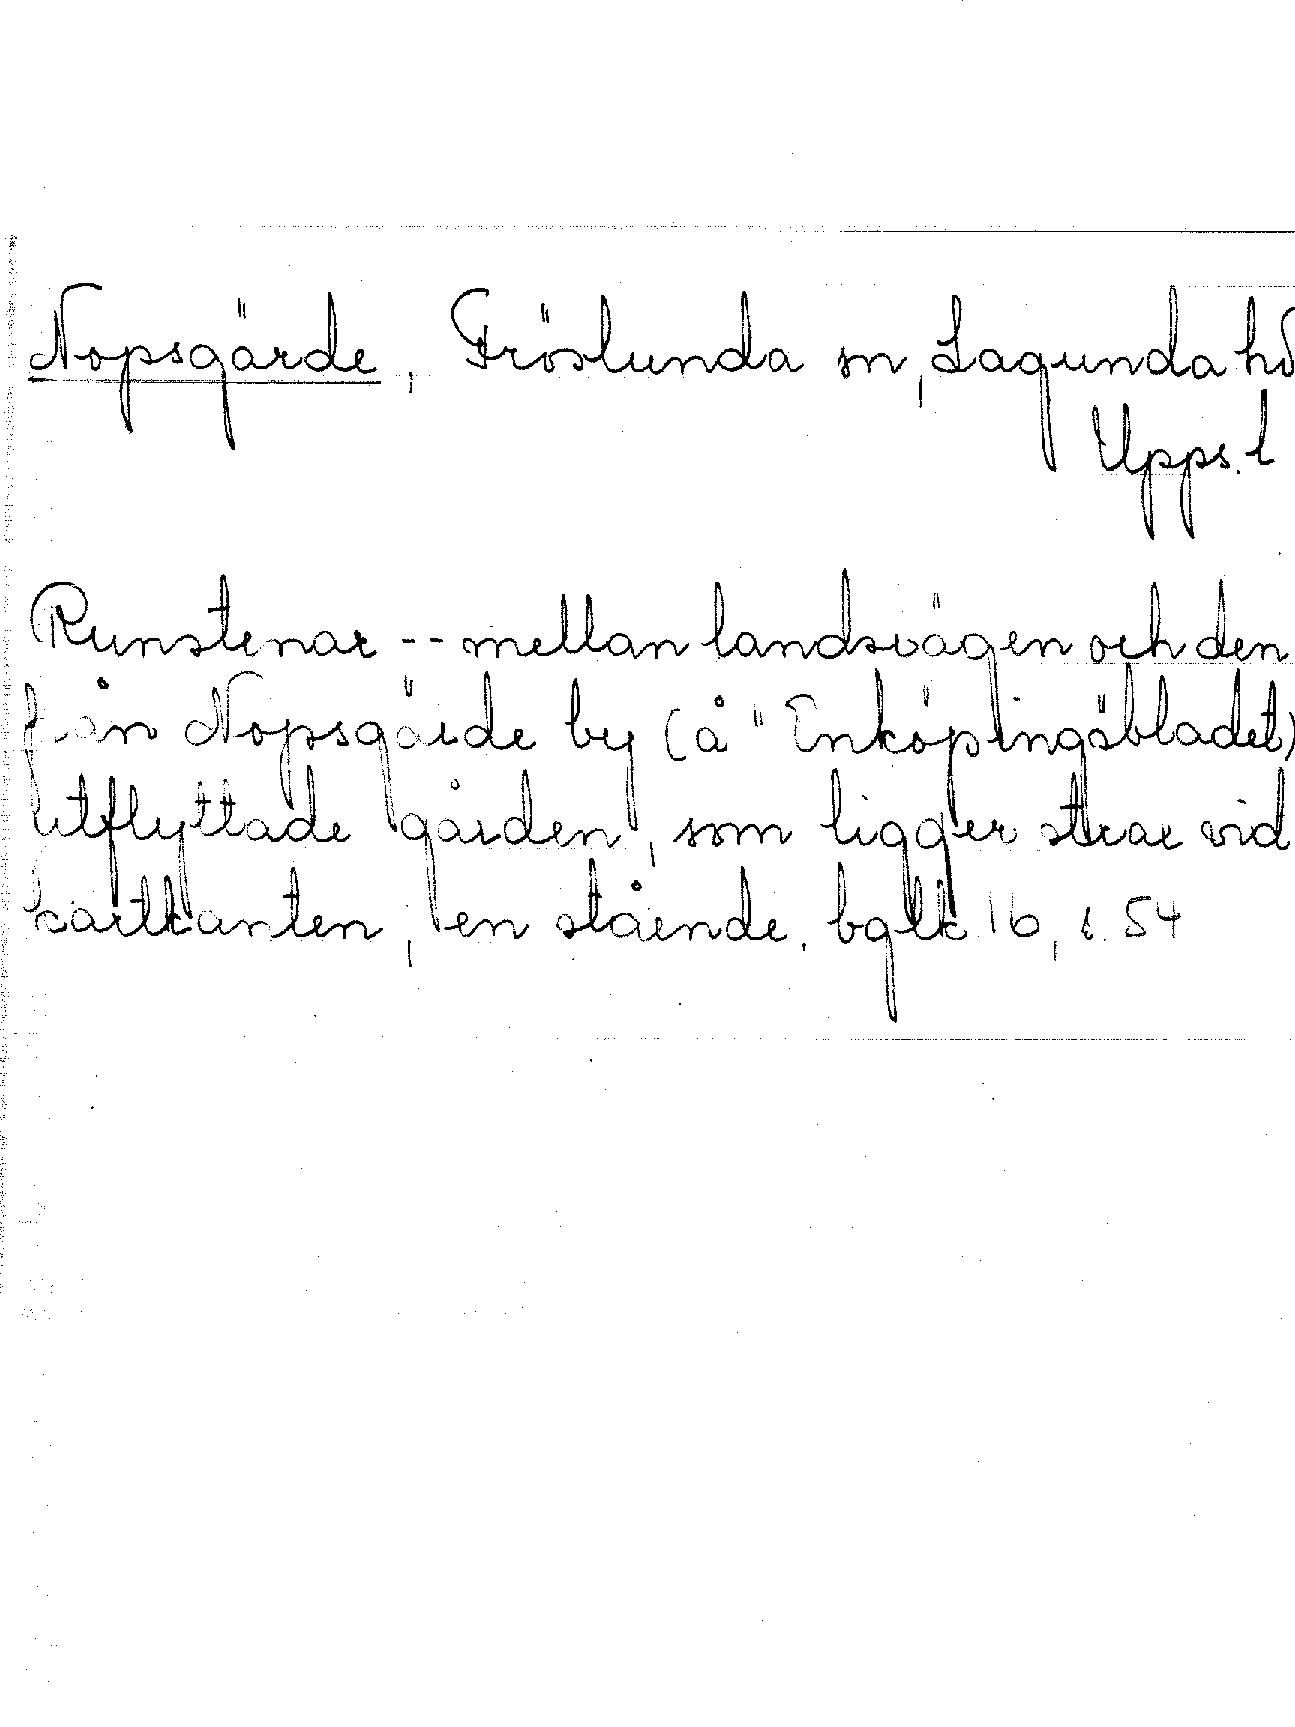 Nopsgärde, Fröslunda sn, Lagunda hd
Upps. l
Runstenar -- mellan landsvägen och den
från Nopsgärde by (å "Enköpingsbladet)
utflyttade gården, som ligger strax vid
kartkanten, en stående. bglk 16, s. 54